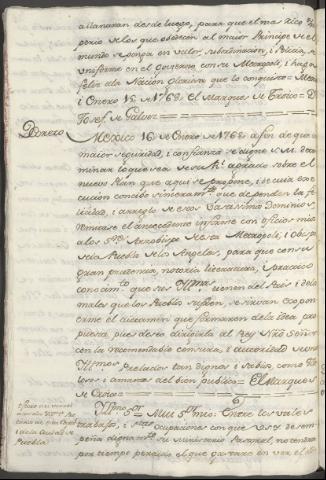 allanaran desde luego, para que el mas rico Im-
perio de los que obedecen al maior Principe de el
mundo se ponga en valor, subordinacion, i Policia, se
uniforme en el Govierno con su Metropoli, i haga
feliz a la Nacion Gloriosa que lo conquistò = Mexico
i Enero 15 de 1768. el Marques de Croix = D.n
Josef de Galvez
Decreto
Mexico 16 de Enero de 1768. a fin de que con
maior seguridad, i confianza se digne S. M. deter-
minar lo que sea de su R.l agrado sobre el
nuevo Plan que aqui se propone, i de cuia exe-
cucion concibo sinceram.te que dependen la fe-
licidad, i arreglo de estos Vastisimos Dominios,
remitase el antecedente informe con oficios mios
a los S.res Arzobispo de esta Metropoli, i Obispo
de la Puebla de los Angeles, para que con su
gran prudencia, notoria literatura, i practico
conocim.to que SS. Ill.mas tienen del Pais i de los
males que los Pueblos sufren, se sirvan expo-
nerme el dictamen que formaren de la idea pro-
puesta, pues deseo dirigirla al Rey Nrô Señor
con la recomendable censura, i autoridad de unos
Ill.mos Prelados tan dignos, i sabios, como Ze-
losos i amantes del bien publico = El Marques
de Croix =
Oficio
Ill.mo S.or = Mui S.or mio: Entre los vastos
trabajos, i ocupaciones con que V. S. Y. desem-
peña dignam.te su Ministerio Pastoral, no tendra
por tiempo perdido el que gastare en ver el